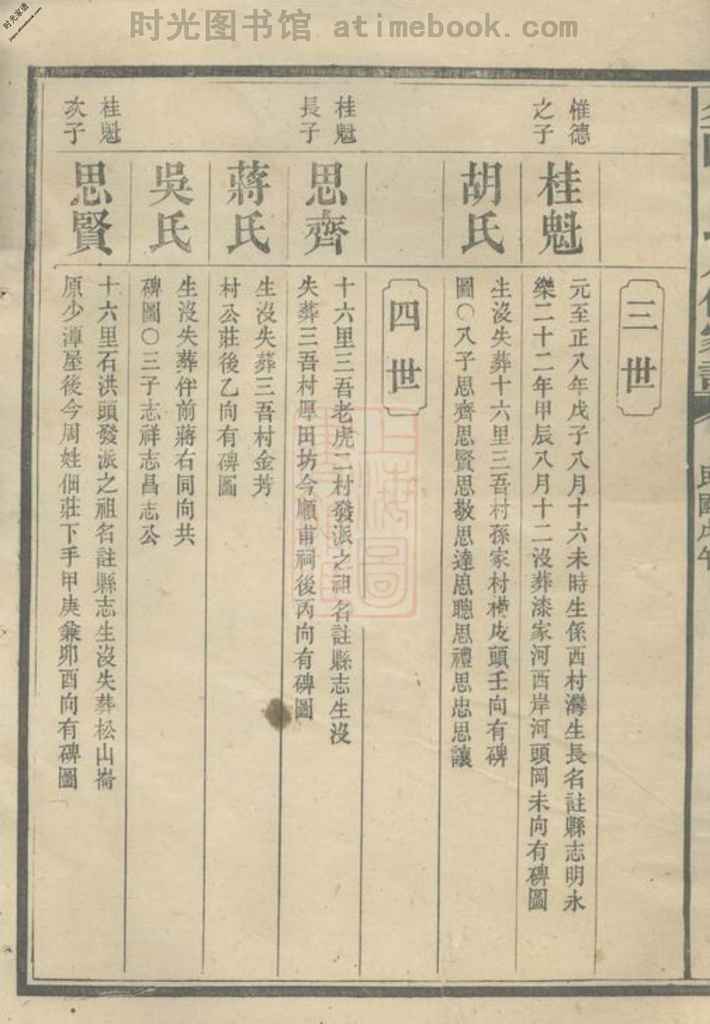 时光图书馆 atimebook.com
时光家谱
三世
惟德
之子
桂魁
元至正八年戊子八月十六未時生係西村灣生長名註縣志明永
樂二十二年甲辰八月十二沒葬漆家河西岸河頭岡未向有碑圖
胡氏
生沒失葬十六里三吾村孫家村橫皮頭壬向有碑
圖○八子思齊思賢思敬思達思聰思禮思忠思讓
四世
桂魁
長子
思齊
十六里三吾老虎二村發派之祖名註縣志生沒
失葬三吾村厚田坊今順甫祠後丙向有碑圖
蔣氏
生沒失葬三吾村金芳
村公莊後乙向有碑圖
吳氏
生沒失葬伴前蔣右同向共
碑圖○三子志祥志昌志公
桂魁
次子
思賢
十六里石洪頭發派之祖名註縣志生沒失葬松山崙
原少潭屋後今周姓佃莊下手甲庚兼卯酉向有碑圖